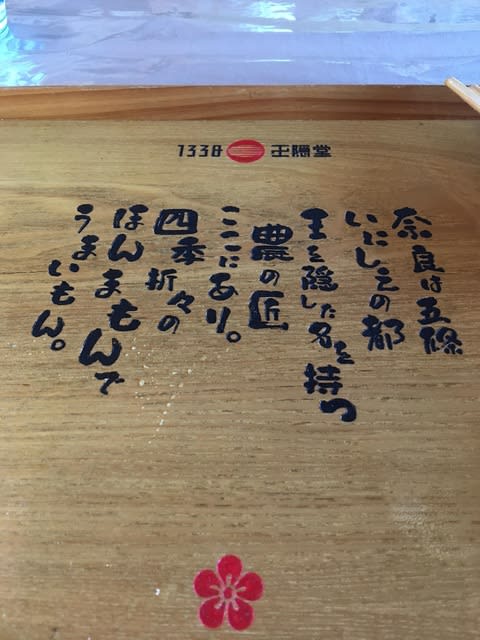 1338 王隠堂
奈良は五條
いにしえの都
王を隠した名を持つ
農の匠
ここにあり。
四季折々の
ほんまもんで
うまいもん。